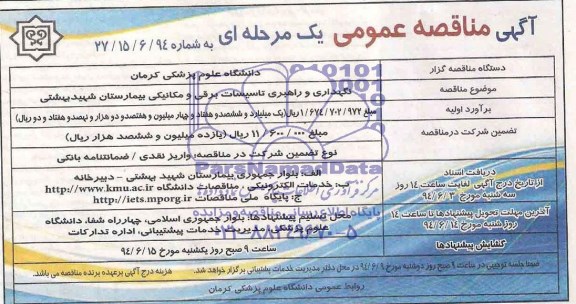 آگهی مناقصه عمومی یک مرحله ای به شماره ۲۷/۱۵/۶/۹۴
دستگاه مناقصه گزار
دانشگاه علوم پزشکی کرمان
موضوع مناقصه
نگهداری و راهبری تاسیسات برقی و مکانیکی بیمارستان شهیدبهشتی
برآورد اولیه
مبلغ ۱/۶۷۴/۷۰۲/۹۷۲ ریال (یک میلیارد و ششصدو هفتاد و چهار میلیون و هفتصدو دو هزار و نهصدو هفتاد و دو ریال)
تضمین شرکت درمناقصه
مبلغ ۱۱/۶۰۰/۰۰۰ ریال (یازده میلیون و ششصد هزار ریال)
نوع تضمین شرکت در مناقصه: واریز نقدی / ضمانتنامه بانکی
دریافت اسناد
ازتاریخ درج آگهی لغایت ساعت ۱۴ روز
سه شنبه مورخ ۹۴/۶/۳
الف: بلوار جمهوری بیمارستان شهید بهشتی - دبیرخانه
ب: خدمات الکترونیکی / مناقصات دانشگاه http://www.kmu.ac.ir
ج: پایگاه ملی مناقصات http://iets.mporg.ir
آخرین مهلت تحویل پیشنهادها تا ساعت ۱۴
روز شنبه مورخ ۹۴/۶/۱۴
محل تسلیم پیشنهادها: بلوار جمهوری اسلامی، چهارراه شفا، دانشگاه
علوم پزشکی، مدیریت خدمات پشتیبانی، اداره تدارکات
گشایش پیشنهادها
ساعت ۹ صبح روز یکشنبه مورخ ۹۴/۶/۱۵
ضمنا جلسه توجیهی در ساعت ۹ صبح روز دوشنبه مورخ ۹۴/۶/۹ در محل دفتر مدیریت خدمات پشتیبانی برگزار خواهد شد. هزینه درج آگهی برعهده برنده مناقصه می باشد.
روابط عمومی دانشگاه علوم پزشکی کرمان